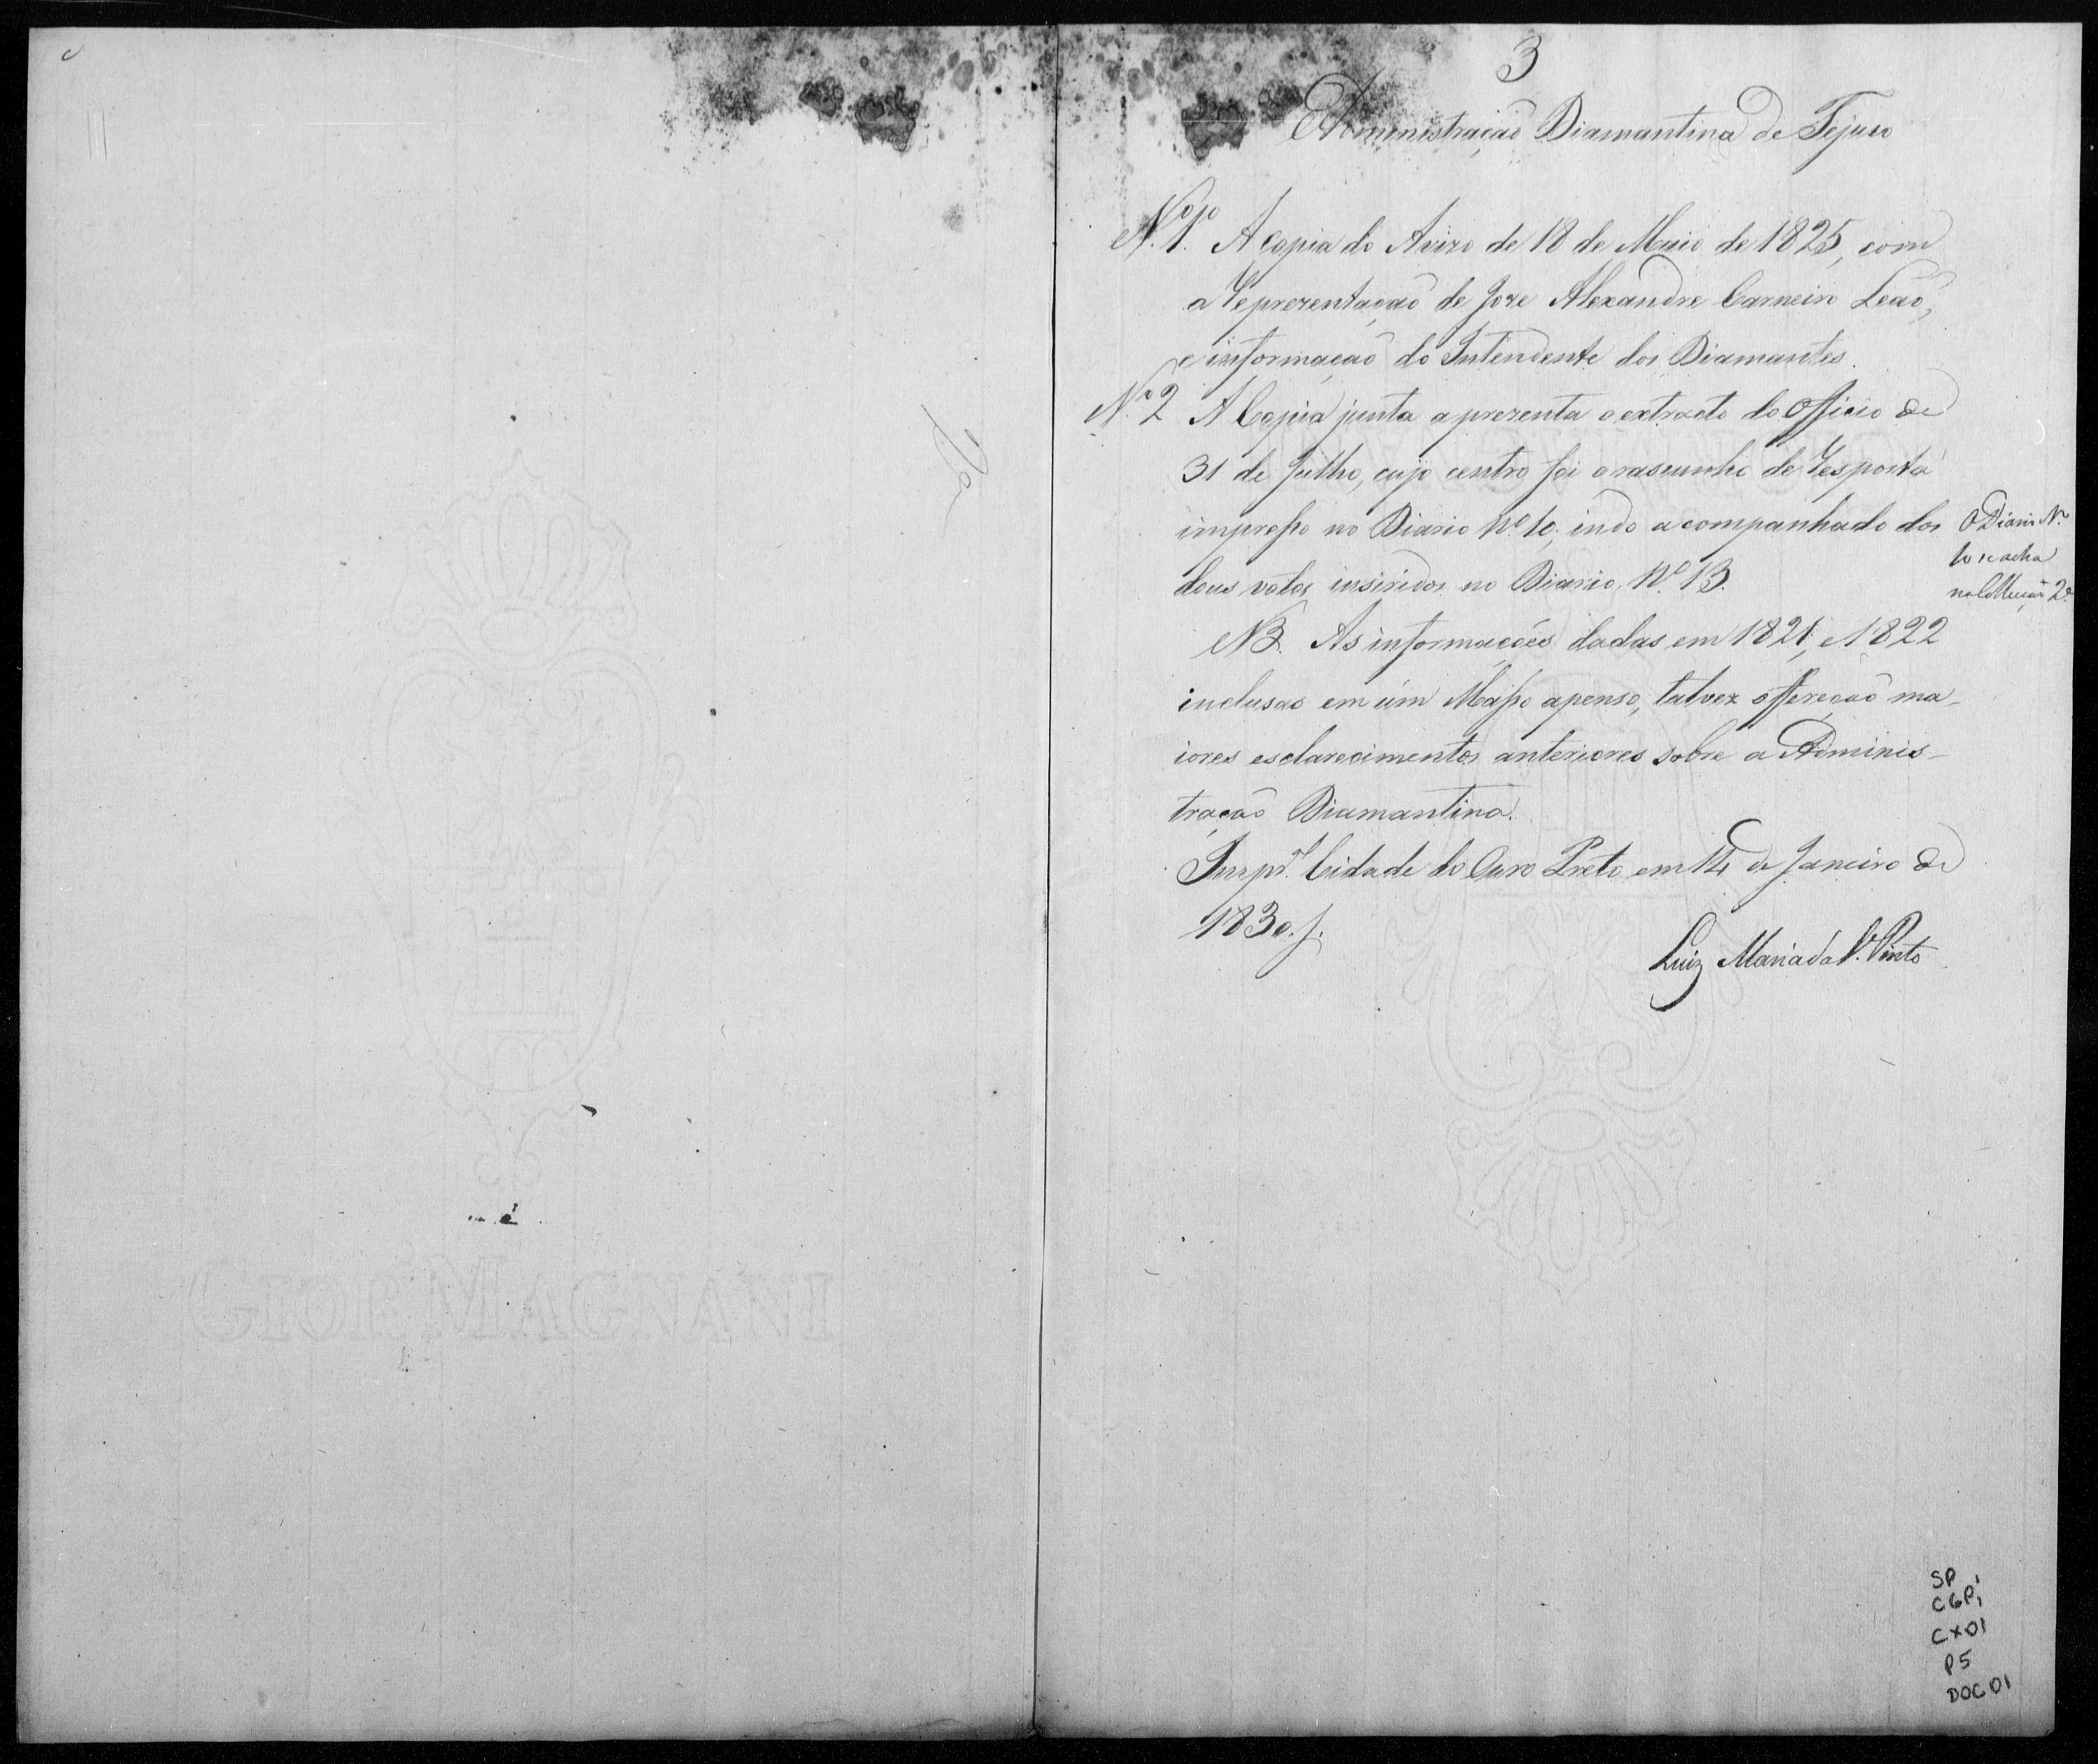 3
Administração Diamantina de Tejuco
N.º 1.º A Copia do Avizo de 18 de Maio de 1825, com
a Reprezentação de Joze Alexandre Carneiro Leão,
e informação do Intendente dos Diamantes.
N.º 2 A Copia junta aprezenta o extracto do Officio de
31 de Julho, cujo centro foi o rascunho de Resposta
impresso no Diario N.º 10, indo acompanhado dos
dous votos insiridos no Diario N.º 13.
O Diario N.º
10 se acha
na Collecção 2ª
NB. As informações dadas em 1821, e 1822
inclusas em úm Masso apenso, talvez offereção ma-
iores esclarecimentos anteriores sobre a Adminis-
tração Diamantina.
Imp.al Cidade do Ouro Preto em 14 de Janeiro de
1830.
Luiz Maria da S.ª Pinto
GIOR MAGNANI
SP
CGP1
CX01
P5
DOC 01